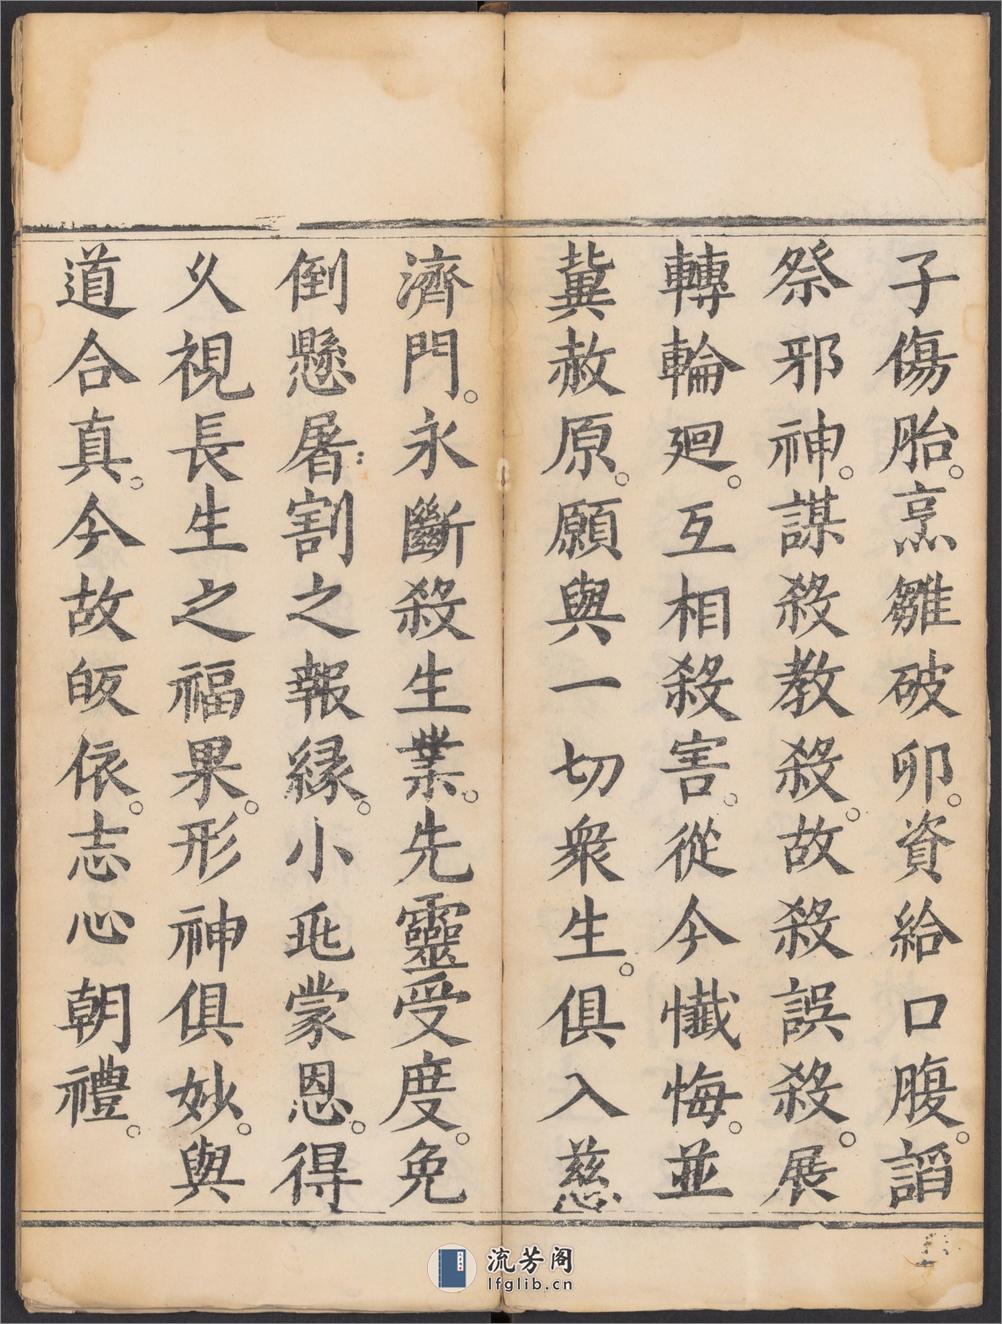 子傷胎。烹雛破卵。資給口腹。謟
祭邪神。謀殺教殺。故殺誤殺。展
轉輪廻。互相殺害。從今懺悔。並
冀赦原。願與一切衆生。俱入慈
濟門。永斷殺生業。先靈受度。免
倒懸屠割之報緣。小兆蒙恩。得
乆視長生之福果。形神俱妙。與
道合真。今故皈依。志心朝禮。
流芳阁
lfglib.cn